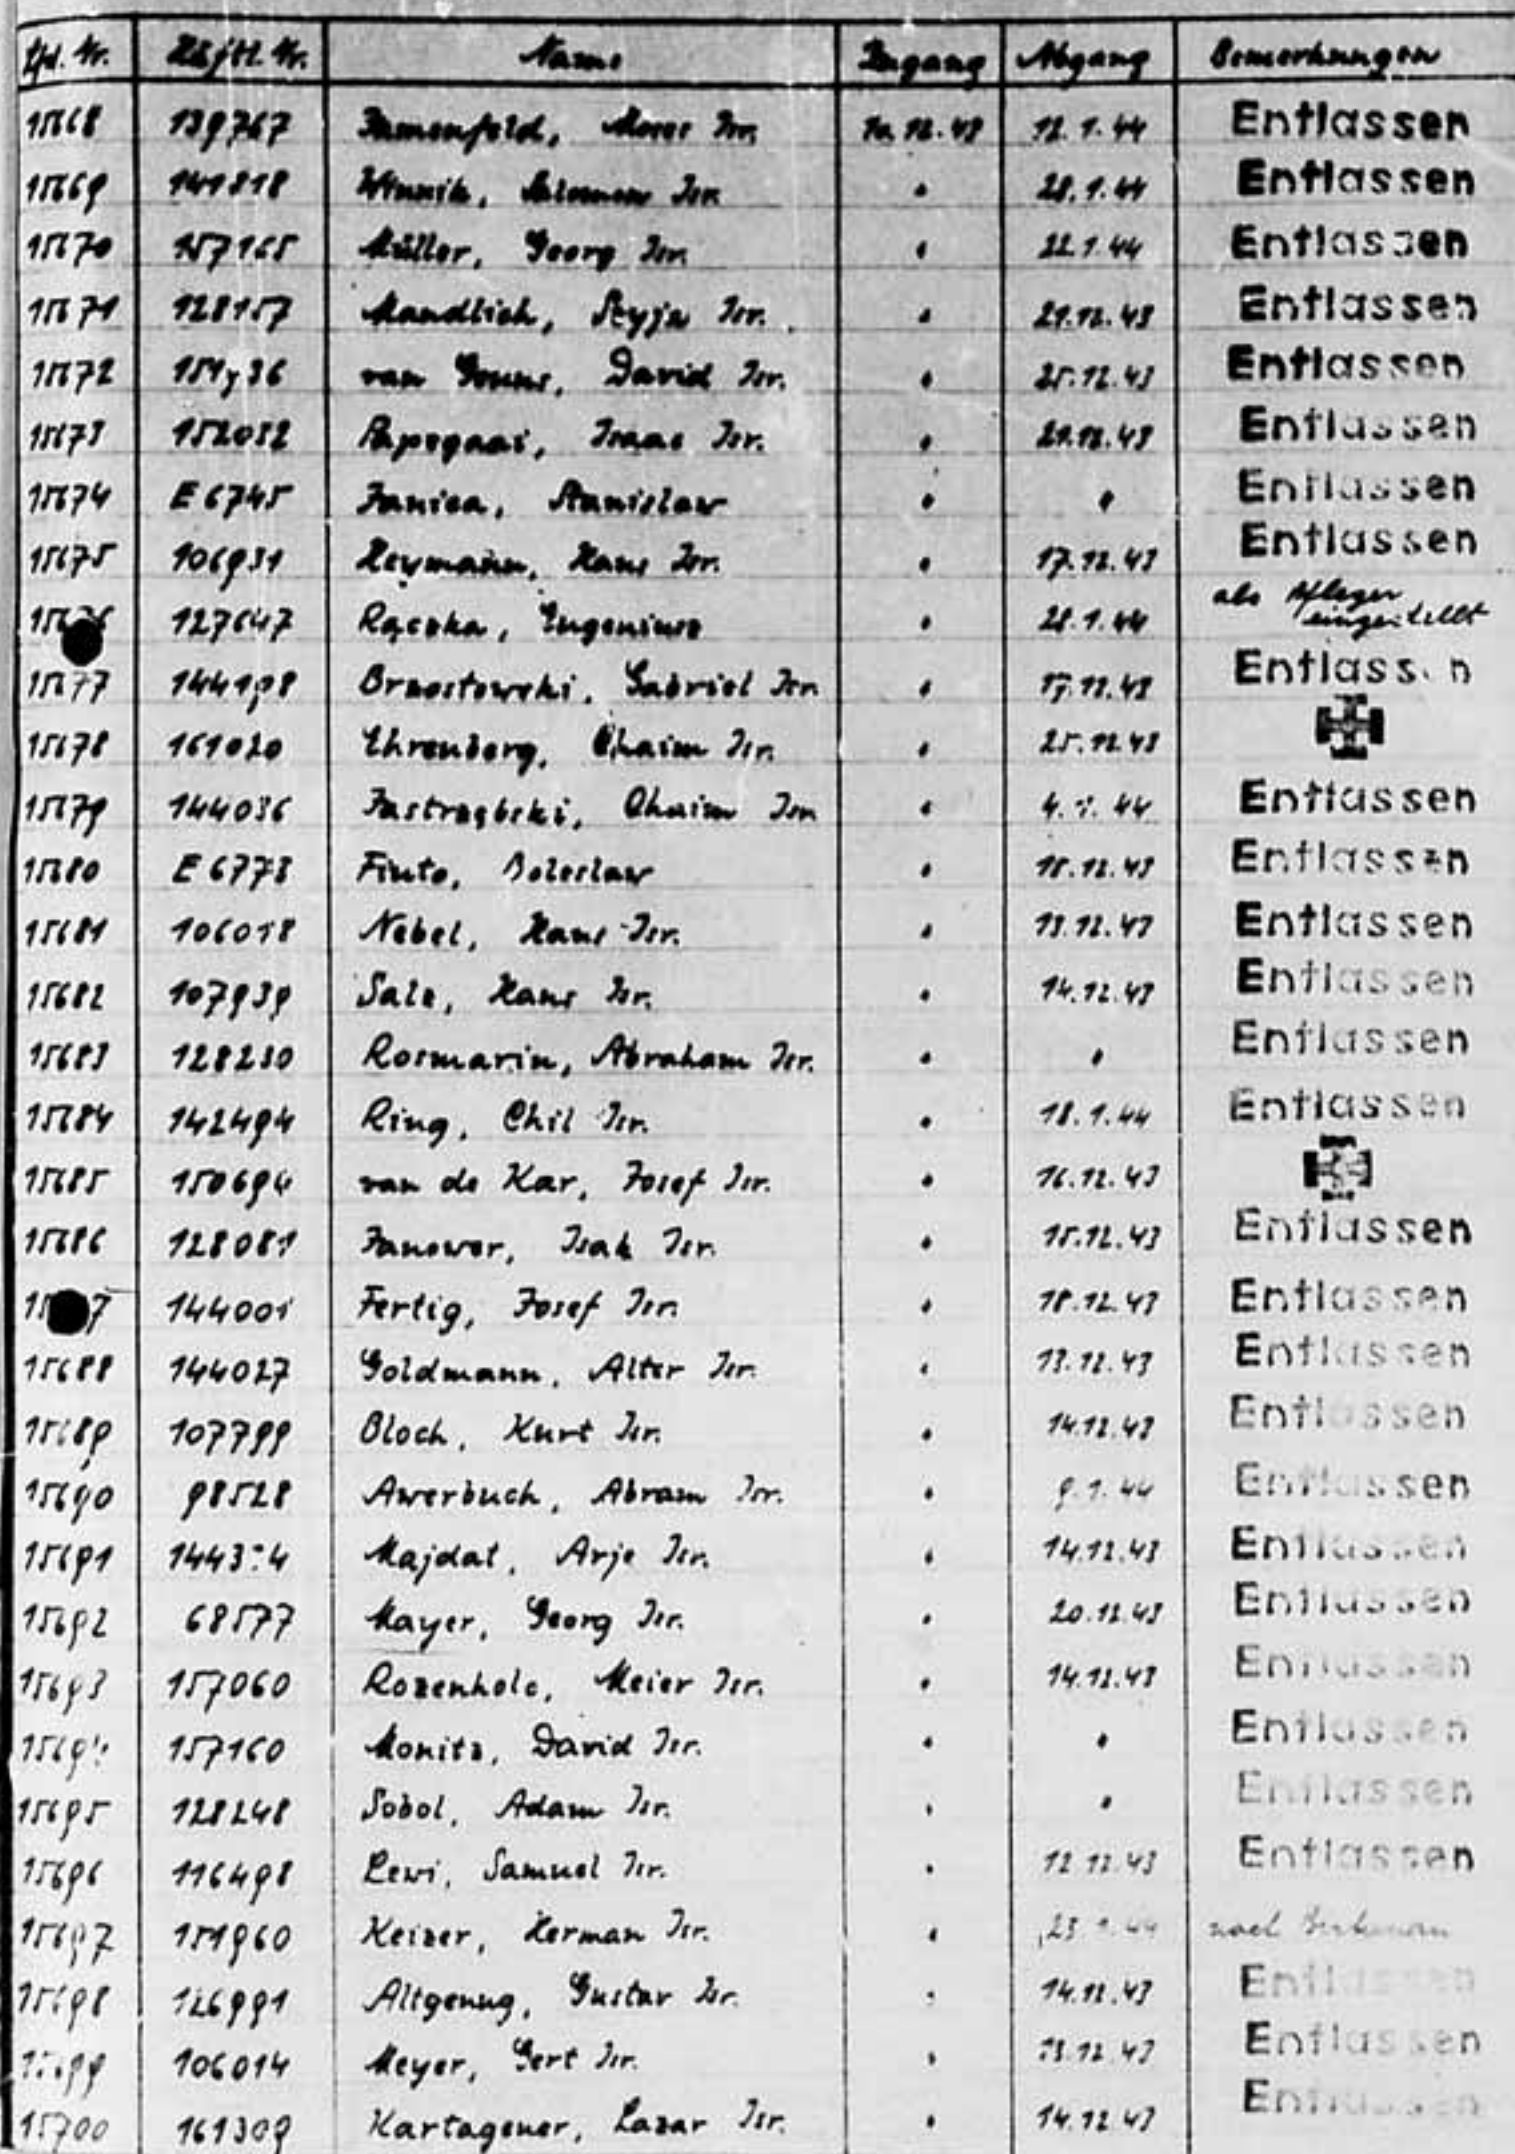 Lfd. Nr. Häftl. Nr. Name Zugang Abgang Bemerkungen
15668 139767 Moses Isr. 10.12.43 12.1.44 Entlassen
15669 141818 Winnik, Salomon Isr. " 28.1.44 Entlassen
15670 157165 Müller, Georg Isr. " 22.1.44 Entlassen
15671 128157 Mandlich, Isr. " 21.12.43 Entlassen
15672 van David Isr. " 25.12.43 Entlassen
15673 152082 Papegaai, Isaac Isr. " 21.12.43 Entlassen
15674 E 6745 Janica, Stanislaw " " Entlassen
15675 106931 Heymann, Hans Isr. " 17.12.43 Entlassen
15676 127647 Rączka, Eugeniusz " 28.1.44 als Pfleger eingestellt
15677 144198 Brzostowski, Gabriel Isr. " 17.12.43 Entlassen
15678 161020 Ehrenberg, Chaim Isr. " 25.12.43
15679 144036 Jastrząbski, Chaim Isr. " 4.1.44 Entlassen
15680 E 6773 Boleslaw " 18.12.43 Entlassen
15681 106018 Nebel, Hans Isr. " 13.12.43 Entlassen
15682 107939 Salz, Hans Isr. " 14.12.43 Entlassen
15683 128230 Rosmarin, Abraham Isr. " " Entlassen
15684 142494 Ring, Chil Isr. " 18.1.44 Entlassen
15685 150694 van de Kar, Josef Isr. " 16.12.43
15686 128081 Janower, Isak Isr. " 15.12.43 Entlassen
144001 Fertig, Josef Isr. " 18.12.43 Entlassen
15688 144027 Goldmann, Alter Isr. " 13.12.43 Entlassen
15689 107799 Bloch, Kurt Isr. " 14.12.43 Entlassen
15690 98528 Awerbuch, Abram Isr. " 9.1.44 Entlassen
15691 Majdat, Arje Isr. " 14.12.43 Entlassen
15692 68577 Mayer, Georg Isr. " 20.12.43 Entlassen
15693 157060 Rozenholc, Meier Isr. " 14.12.43 Entlassen
15694 157160 Monitz, David Isr. " " Entlassen
15695 128248 Sobol, Adam Isr. " " Entlassen
15696 116498 Lewi, Samuel Isr. " 12.12.43 Entlassen
15697 151960 Keizer, Herman Isr. " 23.1.44 nach Birkenau
15698 126991 Altgenug, Gustav Isr. " 14.12.43 Entlassen
15699 106014 Meyer, Gert Isr. " 13.12.43 Entlassen
15700 161309 Kartagener, Lazar Isr. " 14.12.43 Entlassen